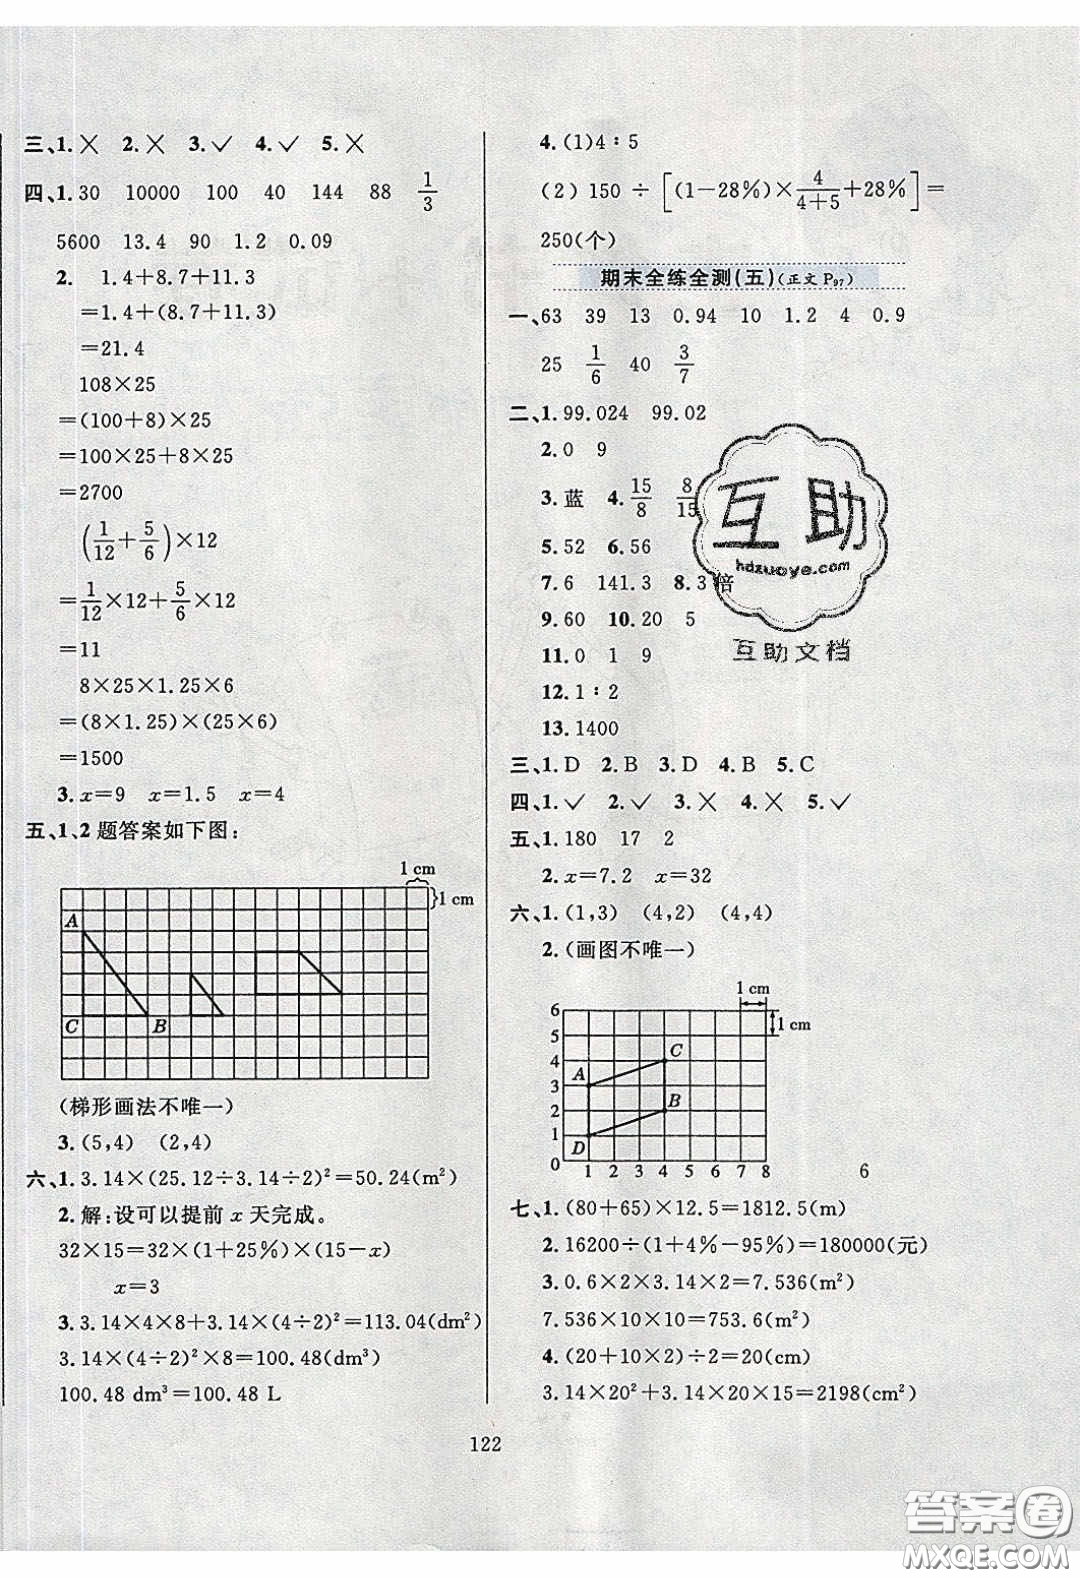 三、1.✕ 2.✕ 3.✓ 4.✓ 5.✕
四、1.30 10000 100 40 144 88 1/3
5600 13.4 90 1.2 0.09
2. 1.4+8.7+11.3
=1.4+(8.7+11.3)
=21.4
108×25
=(100+8)×25
=100×25+8×25
=2700
(1/12+5/6)×12
=1/12×12+5/6×12
=11
8×25×1.25×6
=(8×1.25)×(25×6)
=1500
3.x=9 x=1.5 x=4
五、1、2题答案如下图:
1 cm
1 cm
A
C B
(梯形画法不唯一)
3.(5,4) (2,4)
六、1.3.14×(25.12÷3.14÷2)²=50.24(m²)
2.解:设可以提前x天完成。
32×15=32×(1+25%)×(15-x)
x=3
3.3.14×4×8+3.14×(4÷2)²=113.04(dm²)
3.14×(4÷2)²×8=100.48(dm³)
100.48 dm³=100.48 L
4.(1)4∶5
(2)150÷[(1-28%)×4/(4+5)+28%]=
250(个)
期末全练全测(五)(正文P97)
一、63 39 13 0.94 10 1.2 4 0.9
25 1/6 40 3/7
二、1.99.024 99.02
2.0 9
3.蓝 4.15/8 8/15
5.52 6.56
7.6 141.3 8.3倍
9.60 10.20 5
11.0 1 9
12.1∶2
13.1400
三、1.D 2.B 3.D 4.B 5.C
四、1.✓ 2.✓ 3.✕ 4.✕ 5.✓
五、1.180 17 2
2.x=7.2 x=32
六、1.(1,3) (4,2) (4,4)
2.(画图不唯一)
1 cm
6
1 cm
5
4 C
A
3
B
2
1 D
0 1 2 3 4 5 6 7 8
6
七、1.(80+65)×12.5=1812.5(m)
2.16200÷(1+4%-95%)=180000(元)
3.0.6×2×3.14×2=7.536(m²)
7.536×10×10=753.6(m²)
4.(20+10×2)÷2=20(cm)
3.14×20²+3.14×20×15=2198(cm²)
122
互助
hdzuoye.com
互助文档
答案卷
MXQE.COM